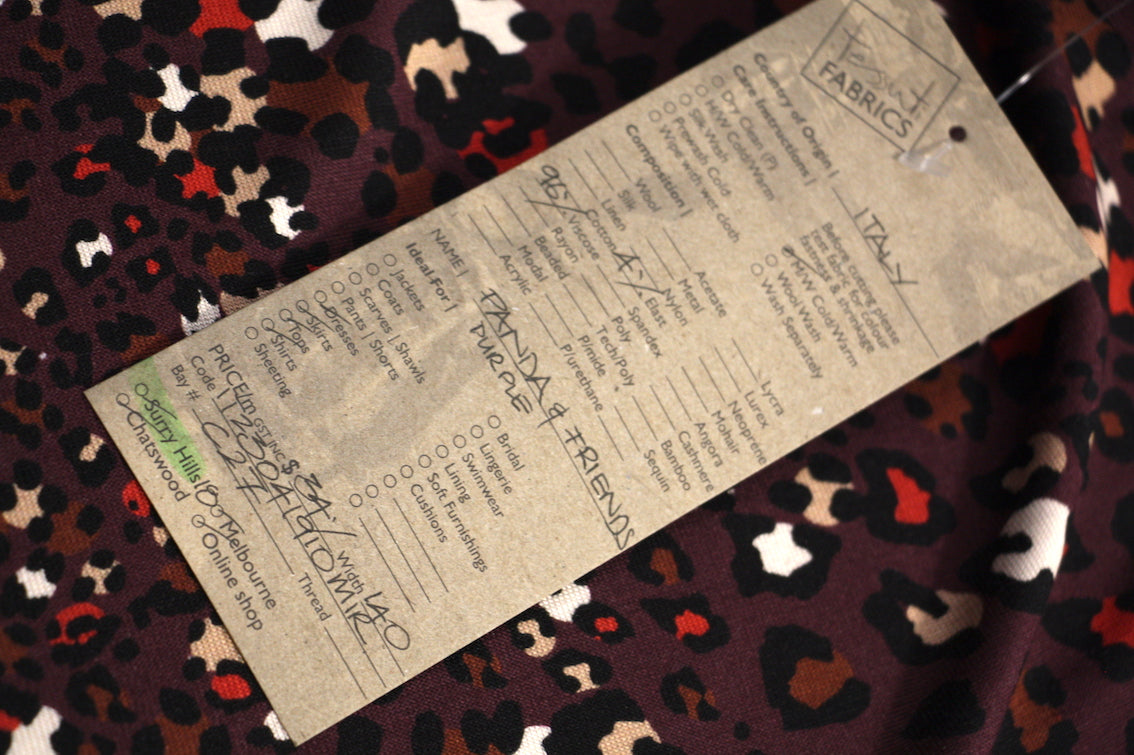 tessuti
FABRICS
Country of Origin | ITALY
Care Instructions |
Dry Clean (P)
H/W Cold/Warm
Silk Wash
Prewash Cold
Wipe with wet cloth
Before cutting please
test fabric for colour
fastness & shrinkage
M/W Cold/Warm
Wool Wash
Wash Separately
Composition |
Wool
Silk
Linen
Cotton
96% Viscose
Rayon
Beaded
Modal
Acrylic
Acetate
Metal
Nylon
4% Elast
Spandex
Poly
Tech/Poly
P/mide
P/urethane
Lycra
Lurex
Neoprene
Mohair
Angora
Cashmere
Bamboo
Sequin
NAME | PANDA & FRIENDS
PURPLE
Ideal For |
Jackets
Coats
Scarves | Shawls
Pants | Shorts
Dresses
Skirts
Tops
Shirts
Sheeting
Bridal
Lingerie
Swimwear
Lining
Soft Furnishings
Cushions
PRICE/m GST INC $ 39./ Width 140
Code |
Bay # C27
Thread
Surry Hills
Melbourne
Chatswood
Online shop